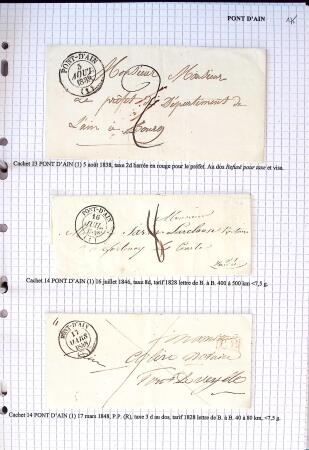 PONT D'AIN
PONT-D'AIN
5
AOUT
1838
(1)
Monsieur Monsieur
Le préfet du Département de
L'ain à Bourg
Cachet 13 PONT D'AIN (1) 5 août 1838, taxe 2d barrée en rouge pour le préfet. Au dos Refusé pour taxe et visa.
PONT-D'AIN
16
JUIL.
(1)
Monsieur
Cachet 14 PONT D'AIN (1) 16 juillet 1846, taxe 8d, tarif 1828 lettre de B. à B. 400 à 500 km <7,5 g.
PONT-D'AIN
17
MARS
(1)
notaire
Pont de veyle
Cachet 14 PONT D'AIN (1) 17 mars 1848, P.P. (R), taxe 3 d au dos, tarif 1828 lettre de B. à B. 40 à 80 km, <7,5 g.